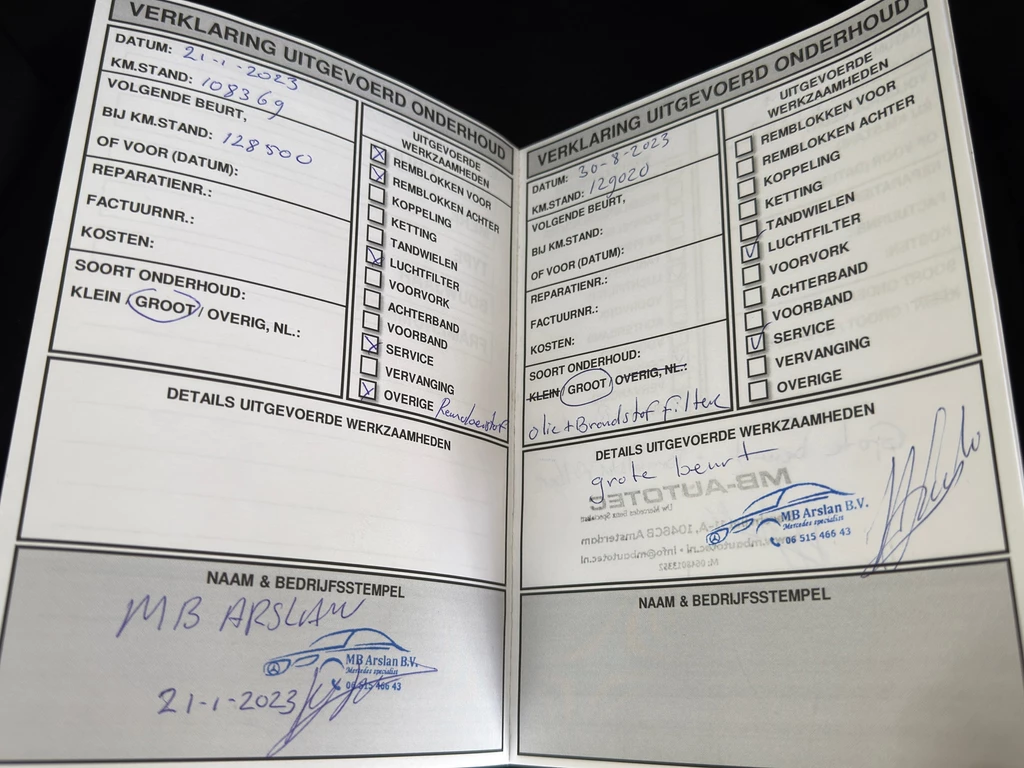 VERKLARING UITGEVOERD ONDERHOUD
DATUM: 21-1-2023
KM.STAND: 108369
VOLGENDE BEURT,
BIJ KM.STAND: 128500
OF VOOR (DATUM):
REPARATIENR.:
FACTUURNR.:
KOSTEN:
SOORT ONDERHOUD:
KLEIN / GROOT / OVERIG, NL.:
UITGEVOERDE
WERKZAAMHEDEN
REMBLOKKEN VOOR
REMBLOKKEN ACHTER
KOPPELING
KETTING
TANDWIELEN
LUCHTFILTER
VOORVORK
ACHTERBAND
VOORBAND
SERVICE
VERVANGING
OVERIGE
DETAILS UITGEVOERDE WERKZAAMHEDEN
NAAM & BEDRIJFSSTEMPEL
MB ARSLAN
MB Arslan B.V.
Mercedes specialist
06 515 466 43
21-1-2023
VERKLARING UITGEVOERD ONDERHOUD
DATUM: 30-8-2023
KM.STAND: 129020
VOLGENDE BEURT,
BIJ KM.STAND:
OF VOOR (DATUM):
REPARATIENR.:
FACTUURNR.:
KOSTEN:
SOORT ONDERHOUD:
KLEIN / GROOT / OVERIG, NL.:
olie + Brandstof filter
UITGEVOERDE
WERKZAAMHEDEN
REMBLOKKEN VOOR
REMBLOKKEN ACHTER
KOPPELING
KETTING
TANDWIELEN
LUCHTFILTER
VOORVORK
ACHTERBAND
VOORBAND
SERVICE
VERVANGING
OVERIGE
DETAILS UITGEVOERDE WERKZAAMHEDEN
grote beurt
MB-AUTOTEC
MB Arslan B.V.
Mercedes specialist
06 515 466 43
NAAM & BEDRIJFSSTEMPEL